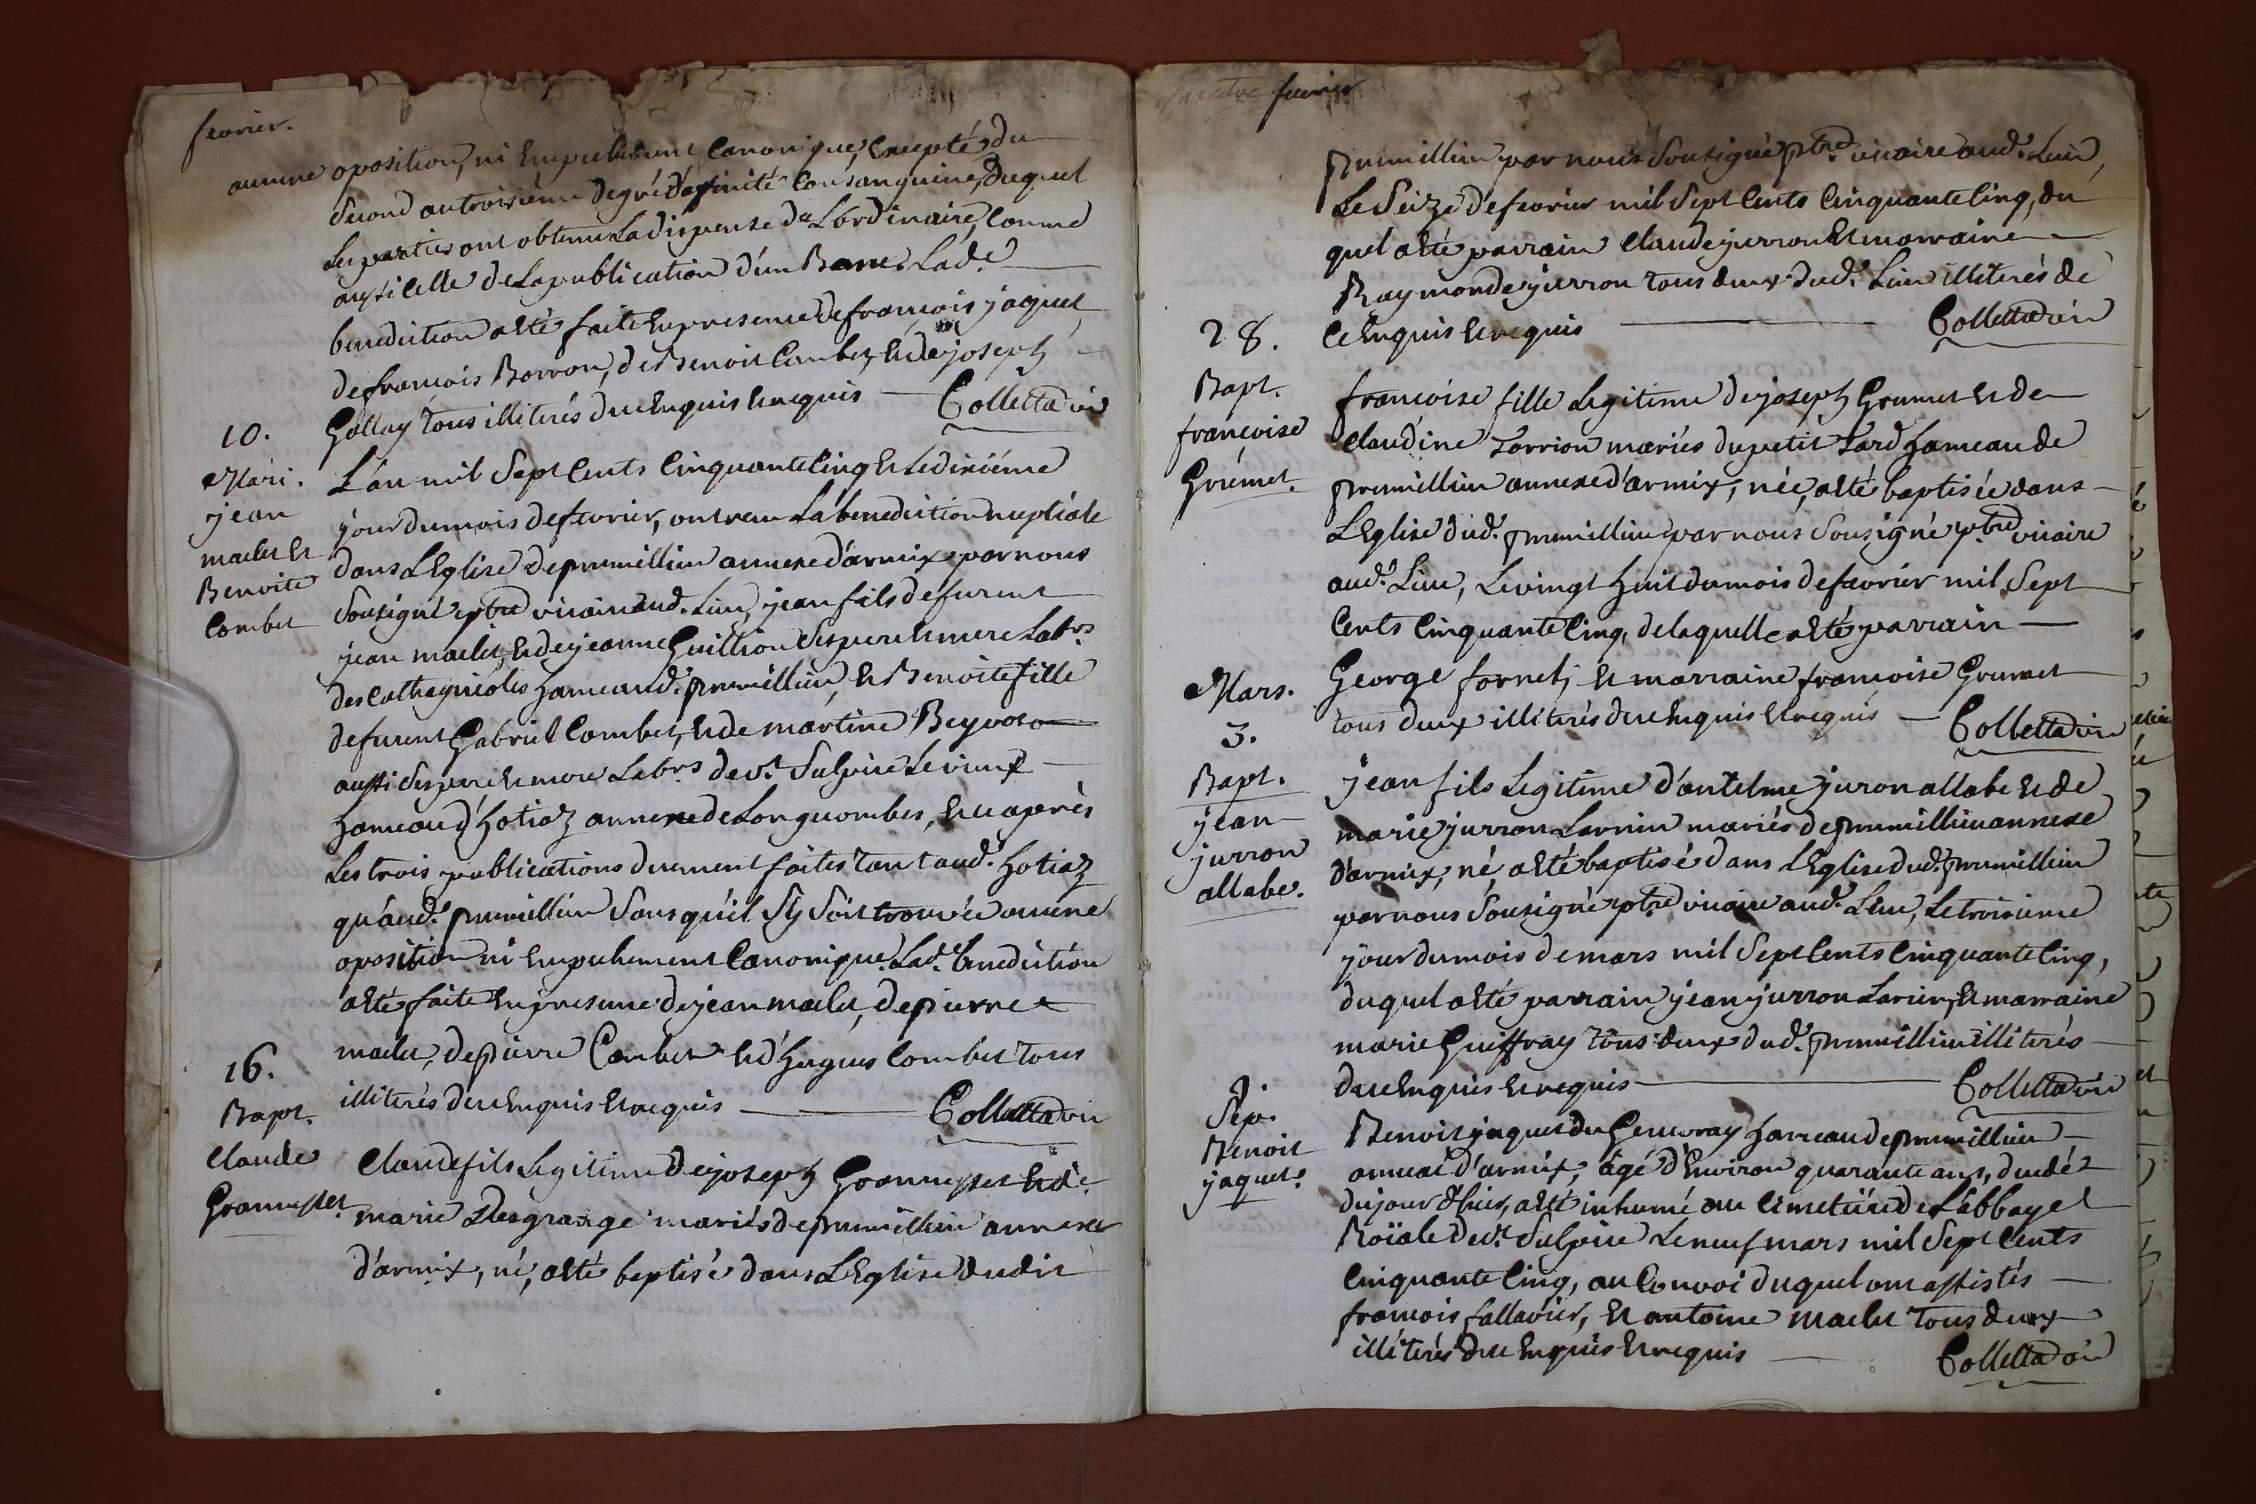 fevrier.
aucune oposition, ni Empechement Canonique, Excepté du
second au troisième degré d'afinité Consanguine, duquel
les parties ont obtenu La dispense de Lordinaire, Comme
aussi celle de La publication d'un Banc. Lad.e
benediction a Eté faite En presence de françois jaquet,
de françois Borron, de Benoit Combet, et de joseph
Gollay tous illiterés de ce Enquis Et requis — Colletta vic
10.
Mari.
jean
maclet Et
Benoite
Combet
L'an mil Sept Cents Cinquante Cinq Et Le dixiéme
jour du mois de fevrier, ont recu La benediction nuptiale
dans LEglise de premillieu annexe d'armix par nous
Sousigné ptre vicaire aud. Lieu, jean fils de furent
jean maclet, Et de jeanne Guillion Ses pere Et mere Lab.rs
des Catagnioles hameau d. premillieu, Et Benoite fille
de furent Gabriel Combet, Et de martine Beyvoz
aussi Ses pere Et mere Lab.rs de S.t Sulpice Le vieux
hameau d'hotiaz annexe de Longecombes, Et ce après
Les trois publications duement faites tant aud. hotiaz
qu'aud. premillieu Sans qu'il S'y Soit trouvée aucune
oposition ni Empechement Canonique. Lad.e benediction
a Eté faite En presence de jean maclet, de pierre
maclet, de pierre Combet Et d'hugues Combet tous
illiterés de ce Enquis Et requis — Colletta vic
16.
Bapt.
Claude
Grannysset
Claude fils Legitime de joseph Grannysset Et de
marie Desgrange mariés de premillieu annexe
d'armix, né, a Eté baptisé dans L'Eglise dudit
fevrier
premillieu par nous Sousigné ptre vicaire aud. Lieu,
Le Seize de fevrier mil Sept Cents Cinquante Cinq, du
quel a Eté parrain Claude jurron Et marraine
Raymonde jurron tous deux dud. Lieu illiterés de
Ce Enquis Et requis — Colletta vic
28.
Bapt.
françoise
Grumet.
françoise fille Legitime de joseph Grumet Et de
Claudine Torrion mariés du petit Tard hameau de
premillieu annexe d'armix, née, a Eté baptisée dans
L'Eglise dud. premillieu par nous Sousigné ptre vicaire
aud. Lieu, Le vingt huit du mois de fevrier mil Sept
Cents Cinquante Cinq, de laquelle a Eté parrain
George fornet, Et marraine françoise Grumet
tous deux illiterés de ce Enquis Et requis — Colletta vic
Mars.
3.
Bapt.
jean
jurron
allabe.
jean fils Legitime d'antelme juron allabe Et de
marie jurron Larnin mariés de premillieu annexe
d'armix, né, a Eté baptisé dans L'Eglise dud. premillieu
par nous Sousigné ptre vicaire aud. Lieu, Le troisieme
jour du mois de mars mil Sept Cents Cinquante Cinq,
duquel a Eté parrain jean jurron Larnin, Et marraine
marie Guiffray tous deux dud. premillieu illiterés
de ce Enquis Et requis — Colletta vic
9.
Sep.
Benoit
jaquet.
Benoit jaquet du Genevray hameau de premillieu
annexe d'armix, âgé d'Environ quarante ans, decedé
du jour d'hier, a Eté inhumé au Cimetiere de L'abbaye
Roïale de S.t Sulpice Le neuf mars mil Sept Cents
Cinquante Cinq, au Convoi duquel ont assistés
françois fallavier, Et antoine maclet tous deux
illiterés de ce Enquis Et requis — Colletta vic